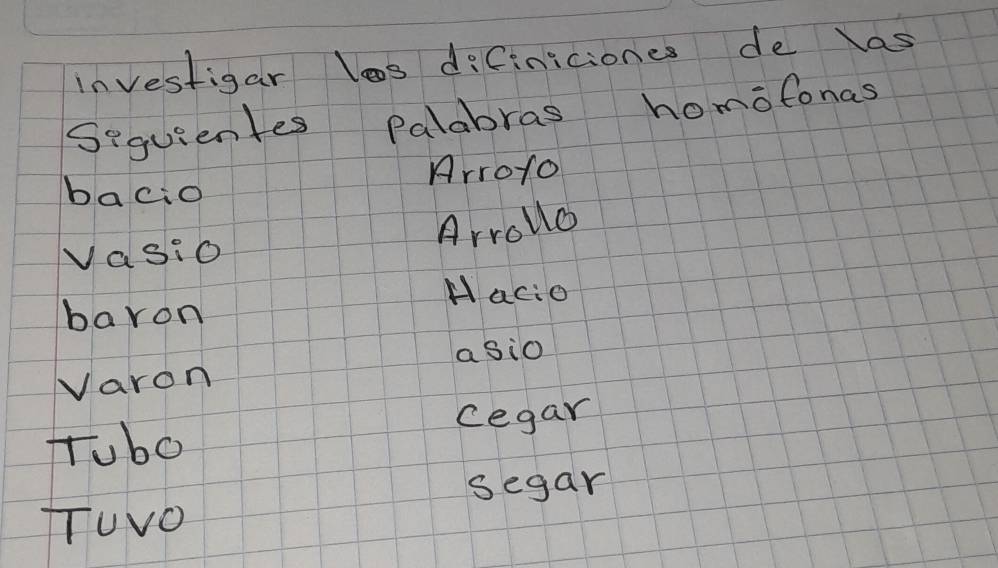 investigar las dificiniciones de las
Siguientes Palabras homófonas
bacio
Vasio
baron
Varon
Tubo
Tuvo
Arroyo
Arrollo
Hacio
asio
cegar
segar